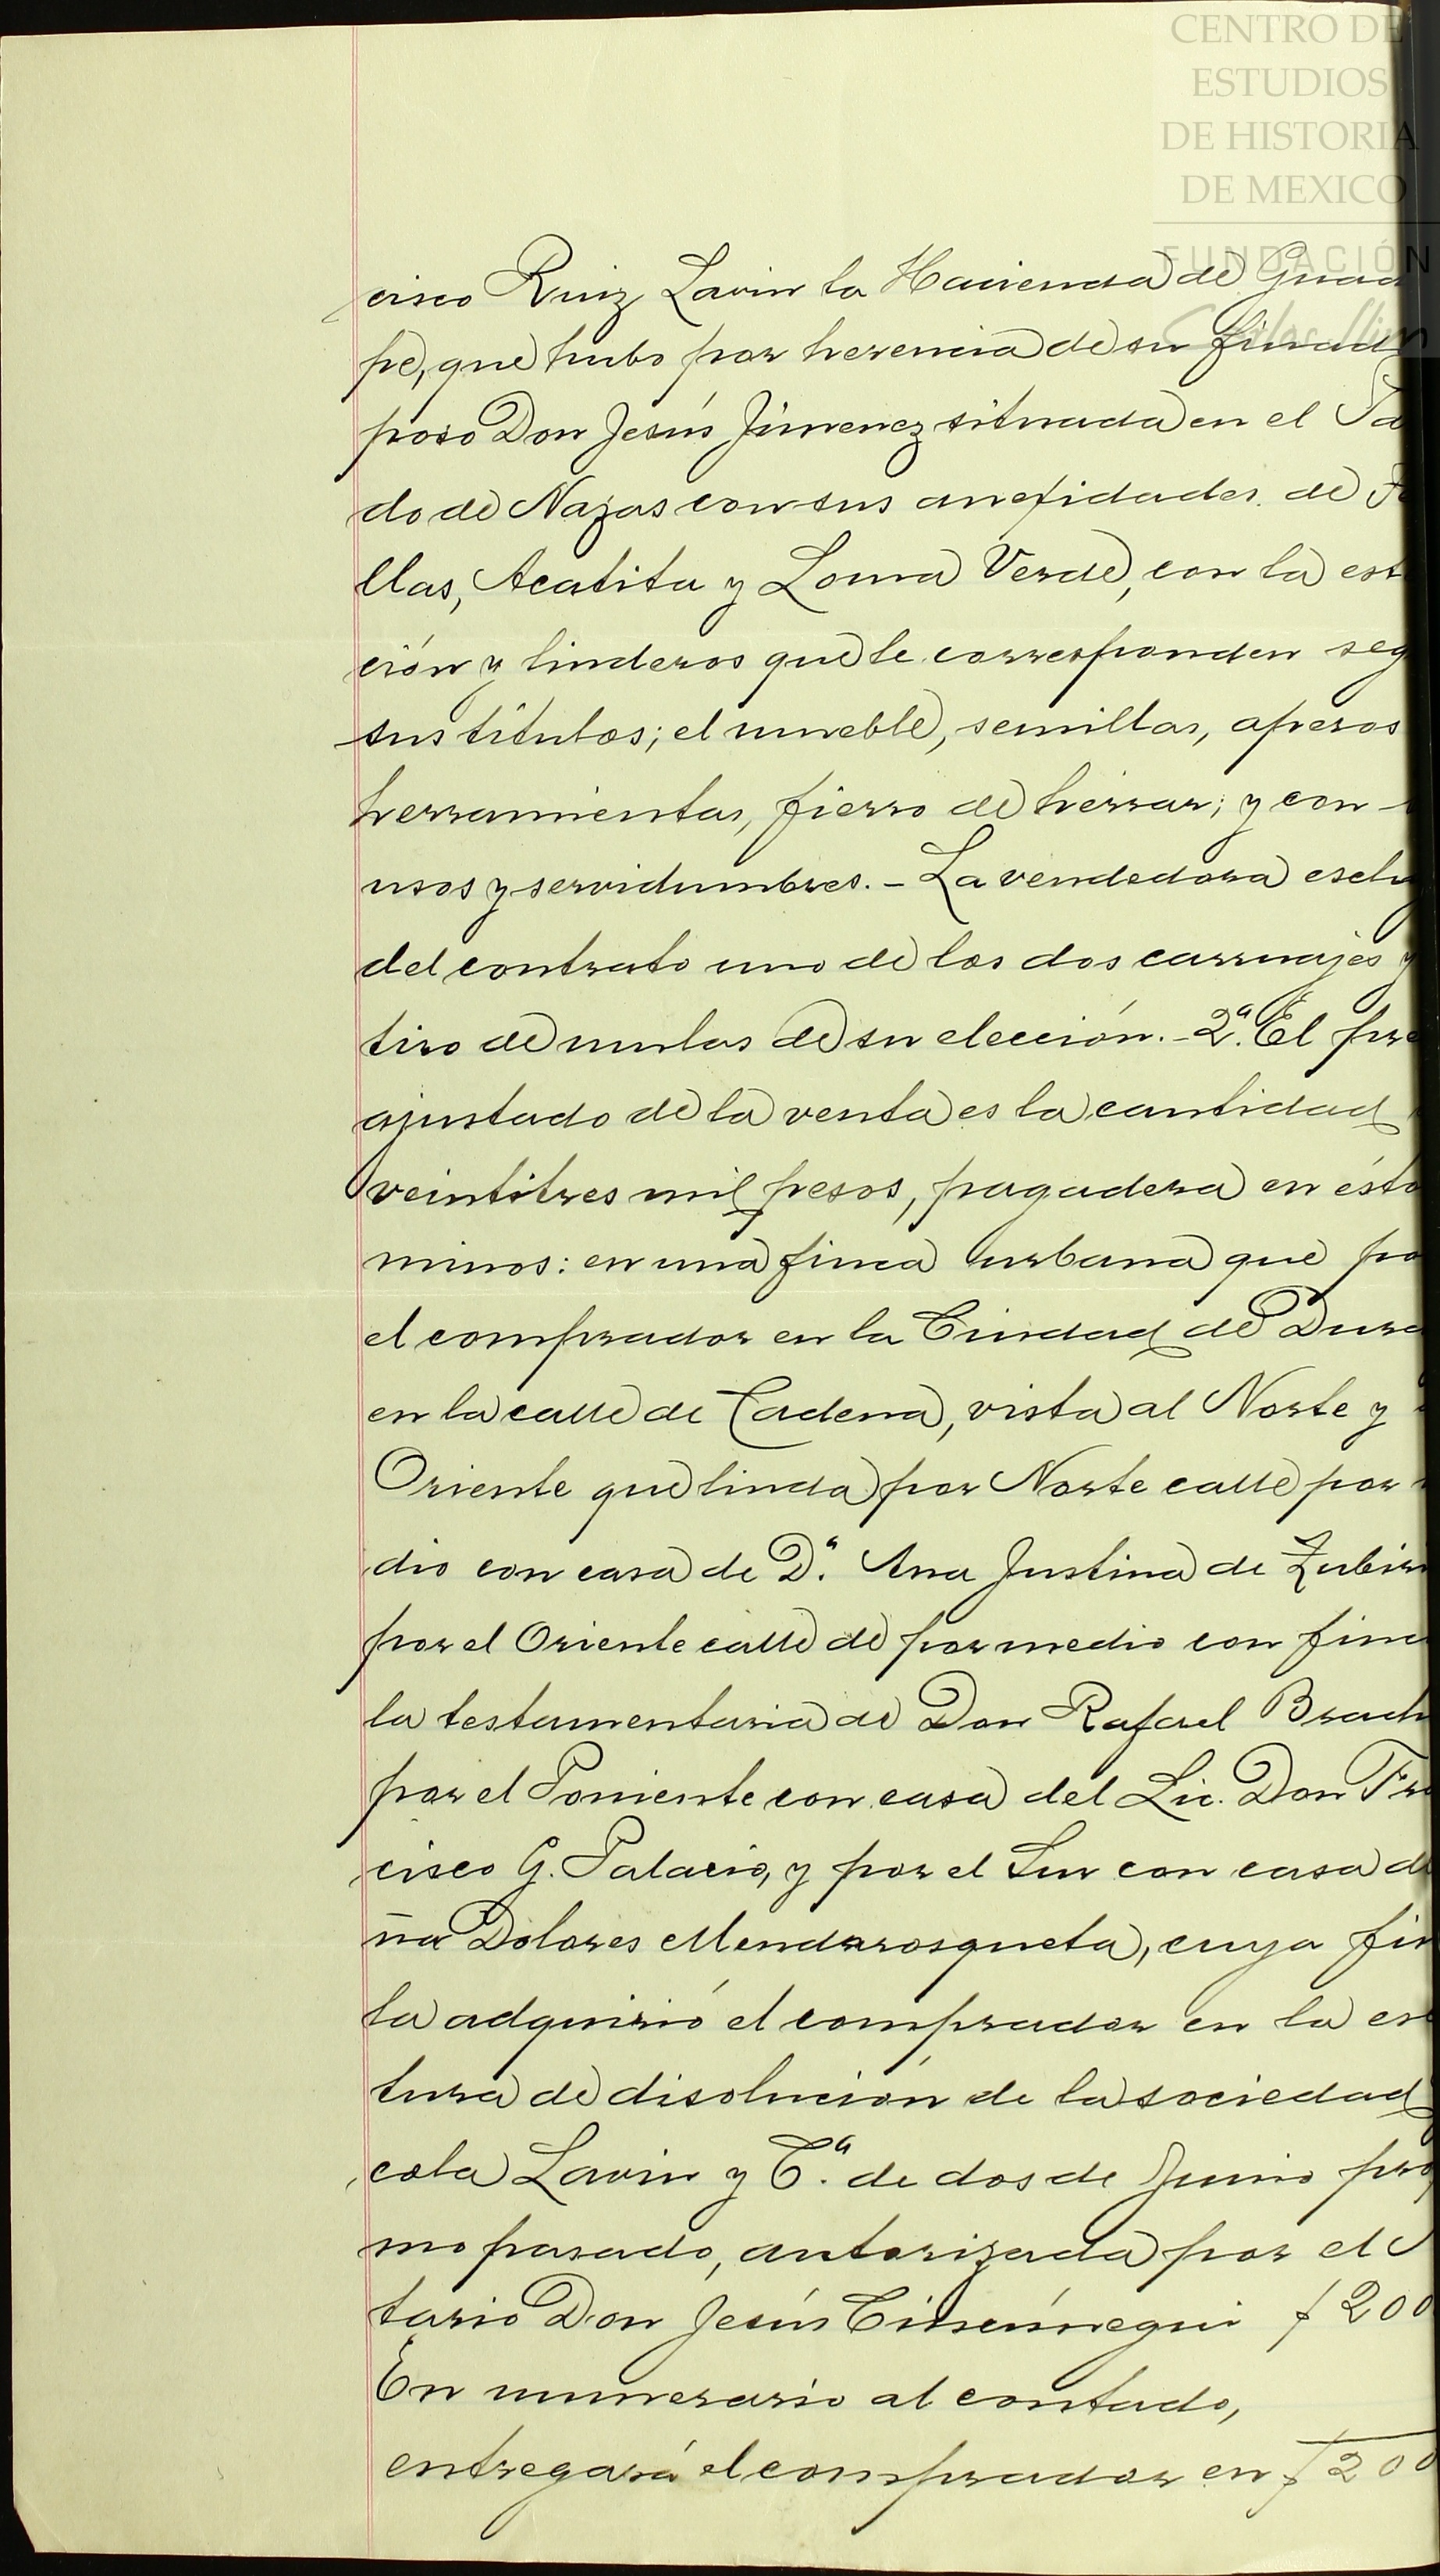 CENTRO DE
ESTUDIOS
DE HISTORIA
DE MEXICO
FUNDACIÓN
Carlos Slim
cisco Ruiz Lavin la Hacienda de Guad
pe, que hubo por herencia de su finad
poso Don Jesús Jimenez situada en el Pa
do de Nazas con sus anexidades de
llas, Acatita y Loma Verde, con la est
ción y linderos que le corresponden seg
sus títulos; el mueble, semillas, aperos
herramientas, fierro de herrar; y con
usos y servidumbres. - La vendedora esclu
del contrato uno de los dos carruajes y
tiro de mulas de su elección. - 2ª. El pre
ajustado de la venta es la cantidad
veintitres mil pesos, pagadera en ésto
minos: en una finca urbana que po
el comprador en la Ciudad de Dura
en la calle de Cadena, vista al Norte y
Oriente que linda por Norte calle por
dio con casa de Dª. Ana Justina de Zubir
por el Oriente calle de por medio con finc
la testamentaria de Don Rafael Brach
por el Poniente con casa del Lic. Don Fra
cisco G. Palacio, y por el Sur con casa d
ña Dolores Mendarosqueta, cuya fin
la adquirió el comprador en la es
tura de disolución de la sociedad
cola Lavin y Cª. de dos de Junio pró
mo pasado, autorizada por el
tario Don Jesús Cincúnegui $ 200
En numerario al contado,
entregará el comprador en $ 200